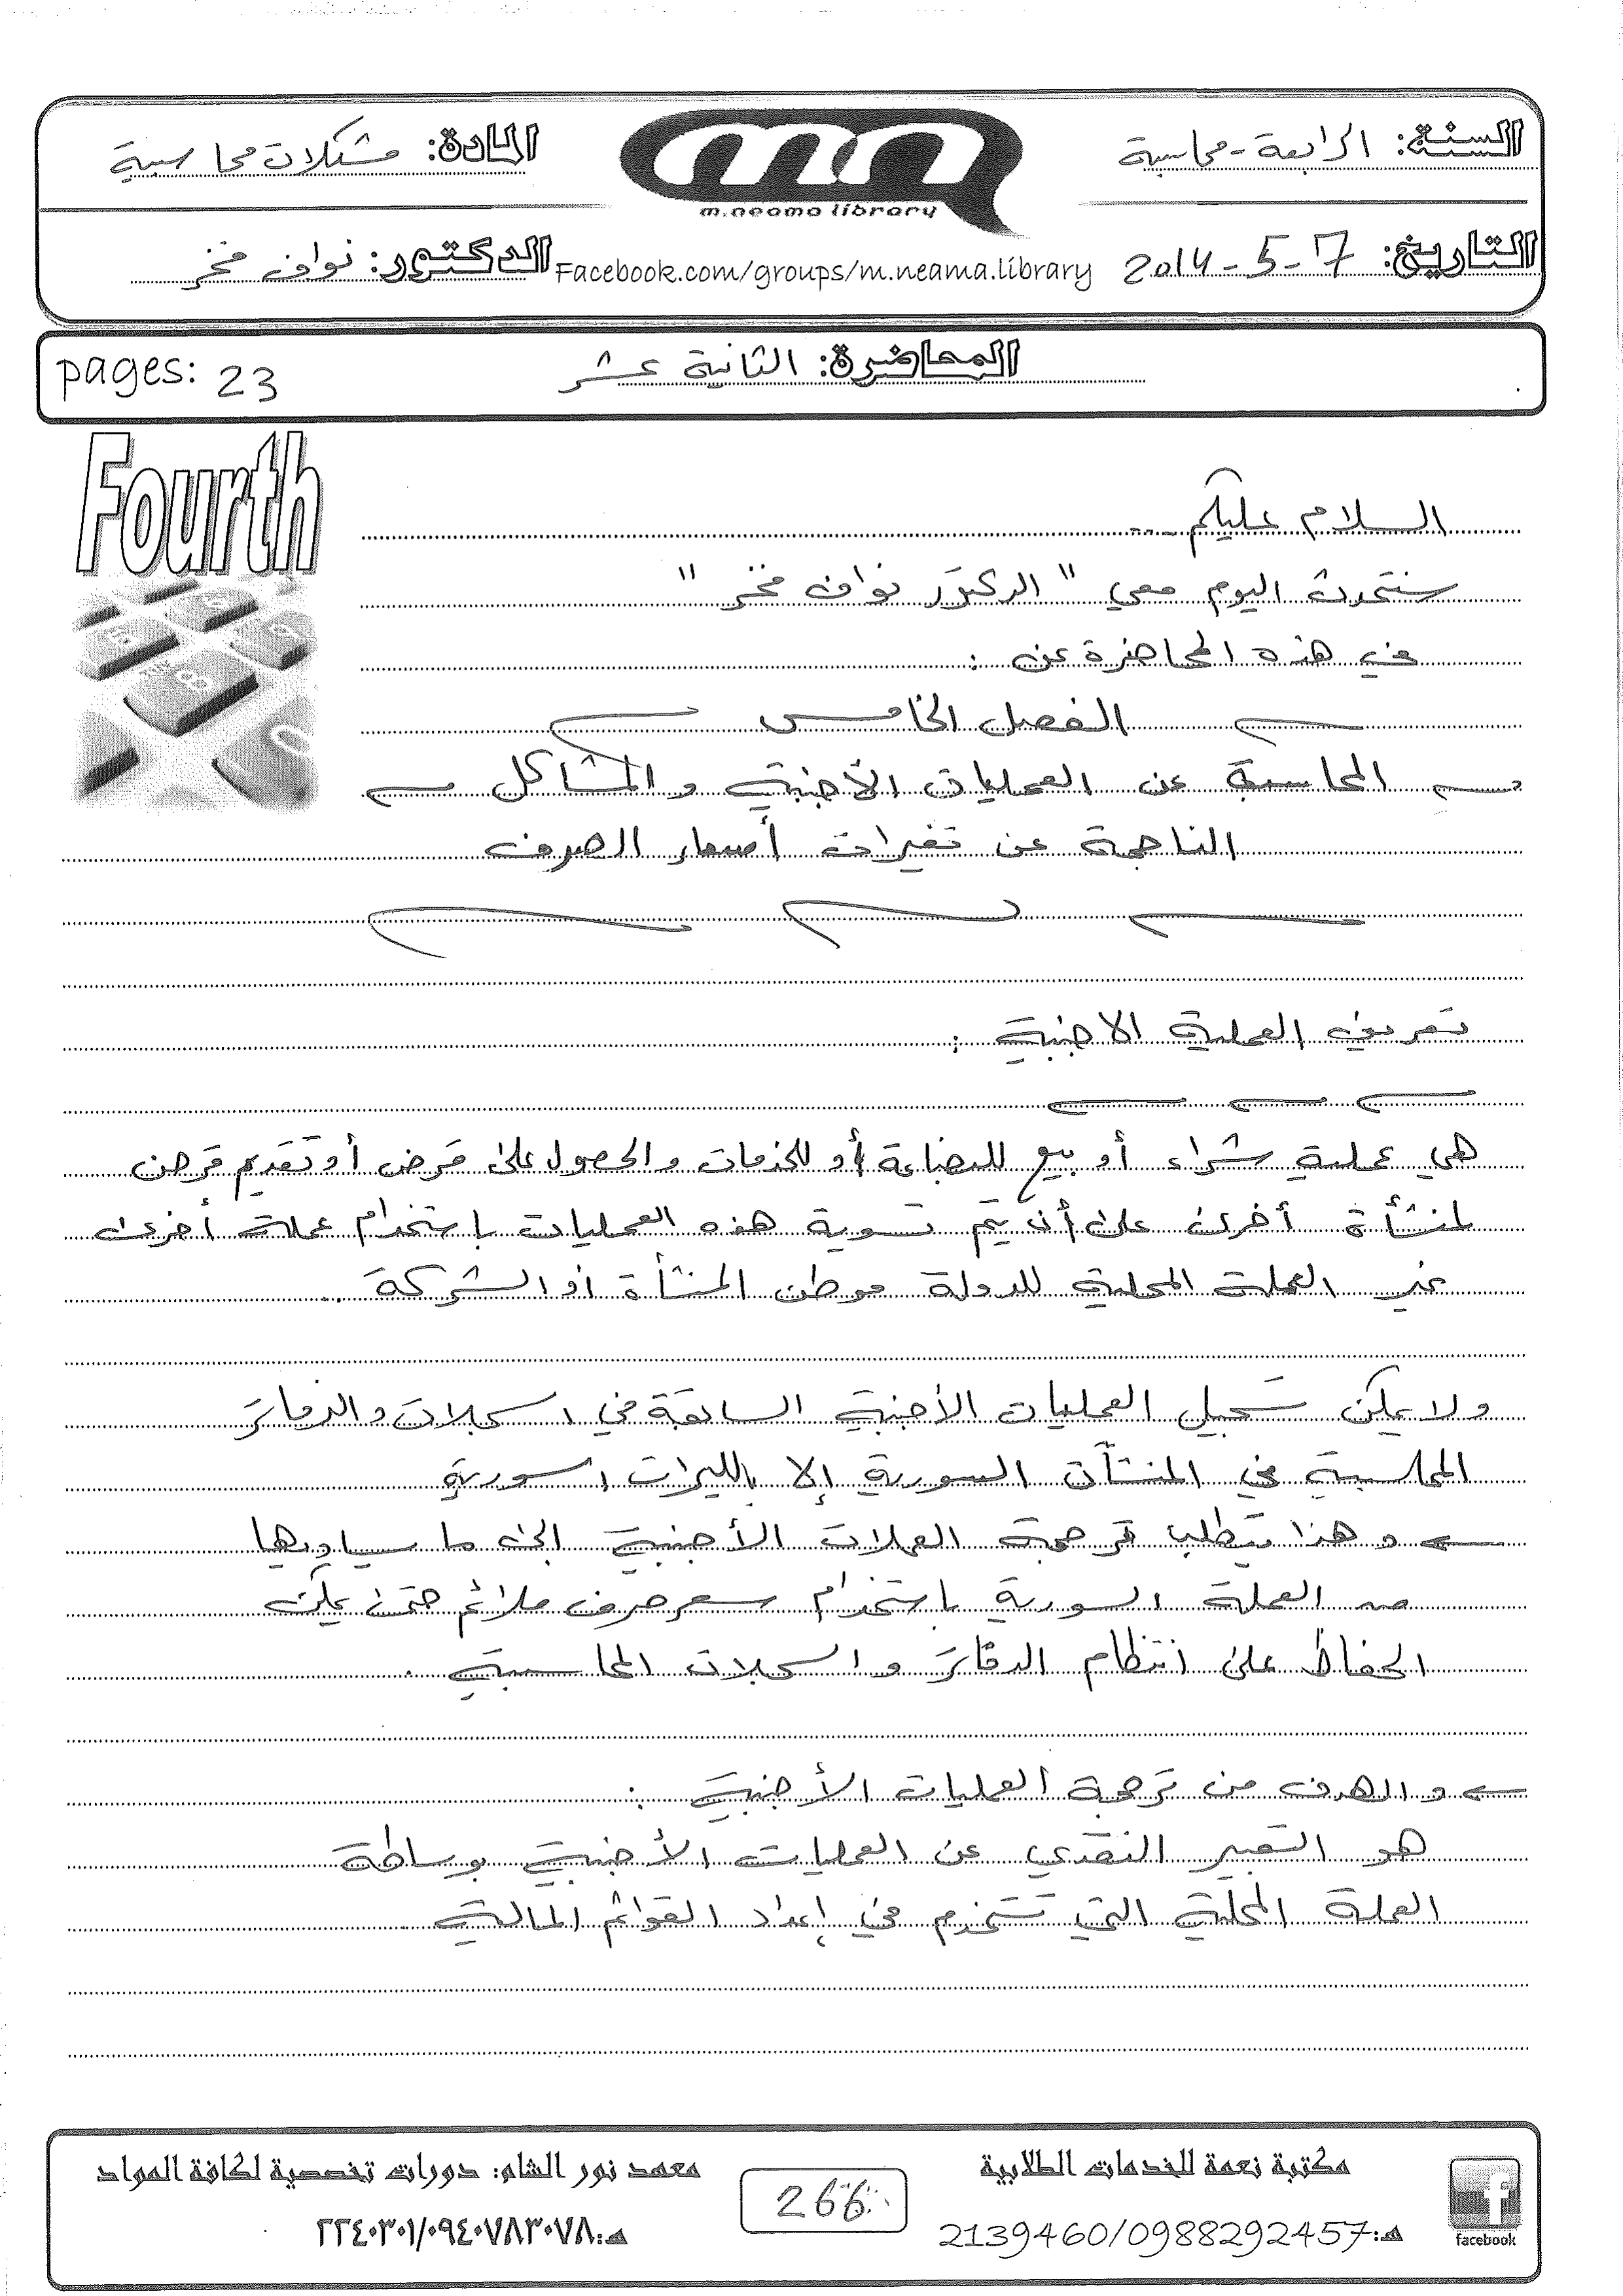 السنة: الرابعة - محاسبة
المادة: مشكلات محاسبية
m.neama library
التاريخ: 17-5-2014
Facebook.com/groups/m.neama.library
الدكتور: نواف فخر
المحاضرة: الثانية عشر
pages: 23
Fourth
السلام عليكم ...
سنتحدث اليوم معي " الدكتور نواف فخر "
في هذه المحاضرة عن :
الفصل الخامس
المحاسبة عن العمليات الأجنبية والمشاكل
الناجمة عن تغيرات أسعار الصرف
تعريف العملية الاجنبية :
هي عملية شراء أو بيع للبضاعة أو للخدمات والحصول على قرض أو تقديم قرض
لمنشأة أخرى على أن يتم تسوية هذه العمليات باستخدام عملة أخرى
غير العملة المحلية للدولة موطن المنشأة أو الشركة ..
ولا يمكن تسجيل العمليات الأجنبية السابقة في السجلات والدفاتر
المحاسبية في المنشآت السورية إلا بالليرات السورية
← وهذا يتطلب ترجمة العملات الأجنبية الى ما يساويها
من العملة السورية باستخدام سعر صرف ملائم حتى يمكن
الحفاظ على انتظام الدفاتر والسجلات المحاسبية .
← والهدف من ترجمة العمليات الأجنبية :
هو التعبير النقدي عن العمليات الأجنبية بوساطة
العملة المحلية التي تستخدم في إعداد القوائم المالية
مكتبة نعمة للخدمات الطلابية
هـ: 2139460/0988292457
266
معهد نور الشام: دورات تخصصية لكافة المواد
هـ: ٢٢٤٠٣٠١/٠٩٤٠٧٨٣٠٧٨
facebook